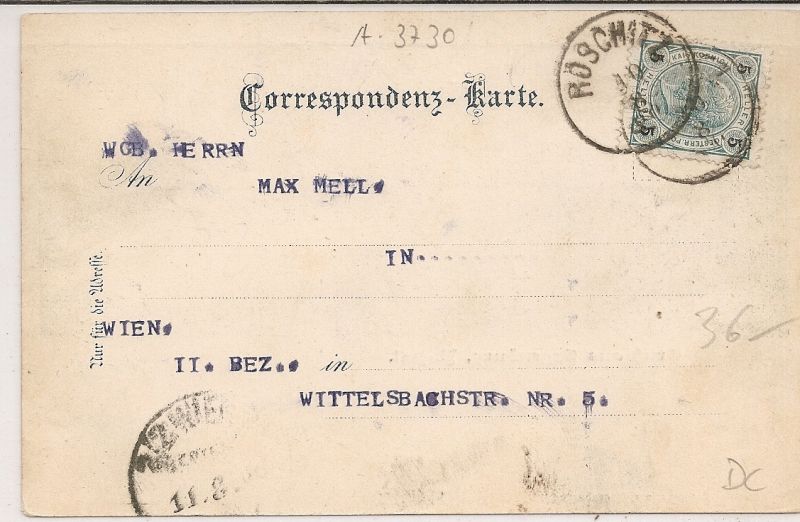 A. 3730
RÖSCHITZ
5 5
5 5
Correspondenz-Karte.
WGB. HERRN
An
MAX MELL.
IN.
Nur für die Adresse.
WIEN.
36-
II. BEZ.. in
WITTELSBACHSTR. NR. 5.
2/2 WIEN
11.8
DC